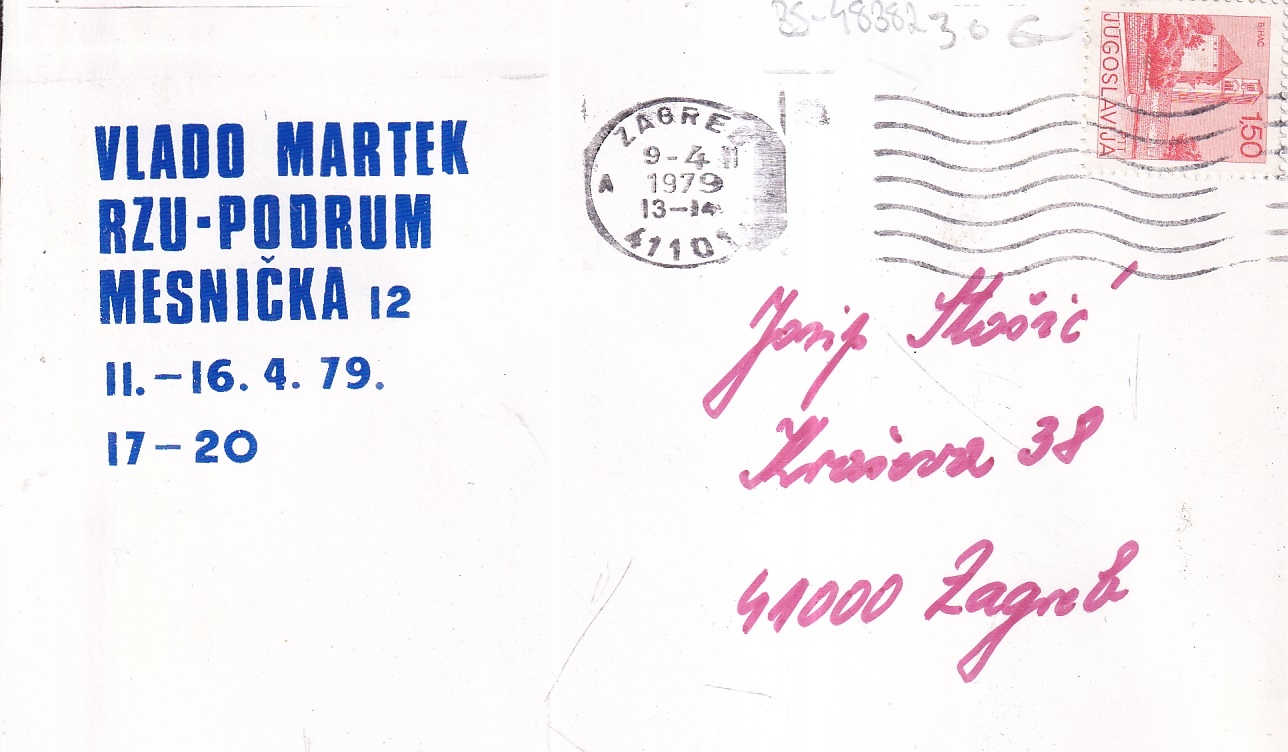 BS-48382 30 €
VLADO MARTEK
RZU-PODRUM
MESNIČKA 12
11.–16. 4. 79.
17–20
ZAGREB
9-4
1979
13-14
A
JUGOSLAVIJA
BIHAĆ
1.50
Josip Stošić
41000 Zagreb
38